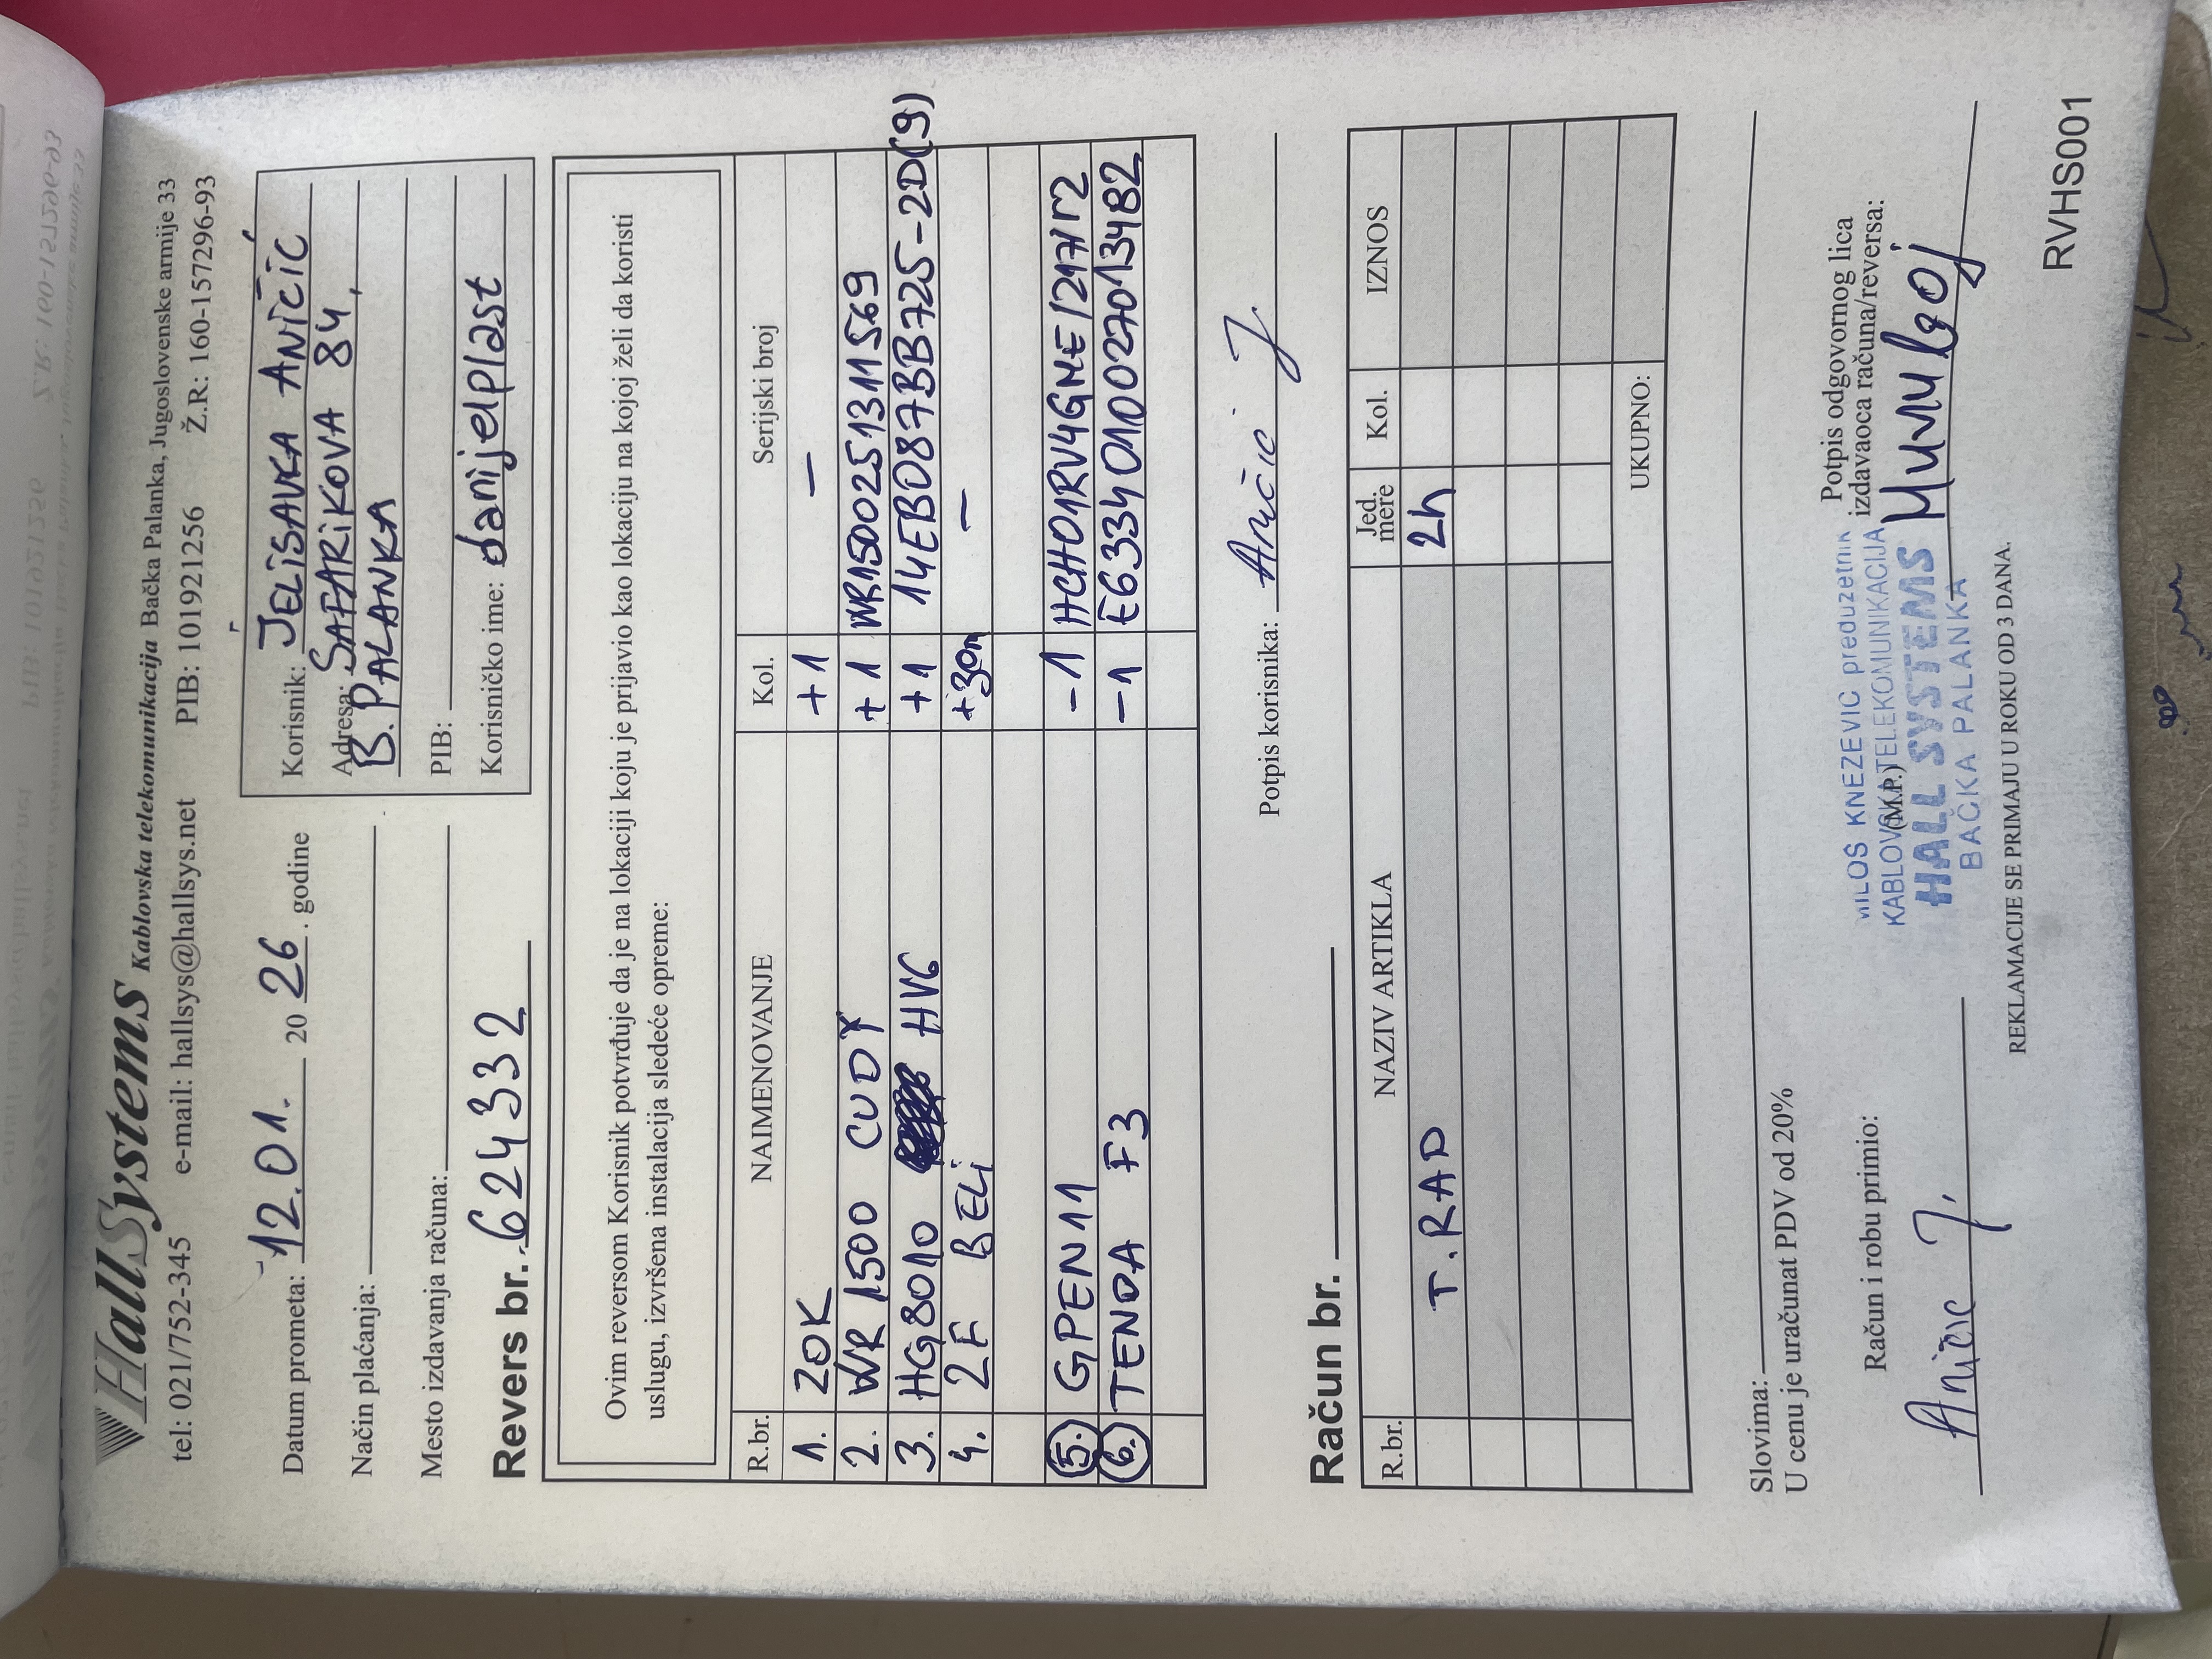 HallSystems Kablovska telekomunikacija Bačka Palanka, Jugoslovenske armije 33
tel: 021/752-345 e-mail: hallsys@hallsys.net PIB: 101921256 Ž.R: 160-157296-93
Datum prometa: 12.01. 2026. godine
Način plaćanja:
Mesto izdavanja računa:
Revers br. 624332
Korisnik: JELISAVKA ANIČIĆ
Adresa: ŠAFARIKOVA 84,
B. PALANKA
PIB:
Korisničko ime: danijelplast
Ovim reversom Korisnik potvrđuje da je na lokaciji koju je prijavio kao lokaciju na kojoj želi da koristi
uslugu, izvršena instalacija sledeće opreme:
R.br. NAIMENOVANJE Kol. Serijski broj
1. ZOK +1 —
2. WR 1500 CUDY +1 WR1500251311569
3. HG8010 HV6 +1 14EB087BB725-2D(9)
4. 2F BELI +30m —
5. GPEN11 -1 HCH01RV4GNE/217/r2
6. TENDA F3 -1 E6334010027013482
Potpis korisnika: Aničić J
Račun br.
R.br. NAZIV ARTIKLA Jed. mere Kol. IZNOS
T. RAD 2h
UKUPNO:
Slovima:
U cenu je uračunat PDV od 20%
Račun i robu primio:
Potpis odgovornog lica
izdavaoca računa/reversa:
(M.P.)
MILOS KNEZEVIC preduzetnik
KABLOVSKA TELEKOMUNIKACIJA
HALL SYSTEMS
BAČKA PALANKA
REKLAMACIJE SE PRIMAJU U ROKU OD 3 DANA.
RVHS001